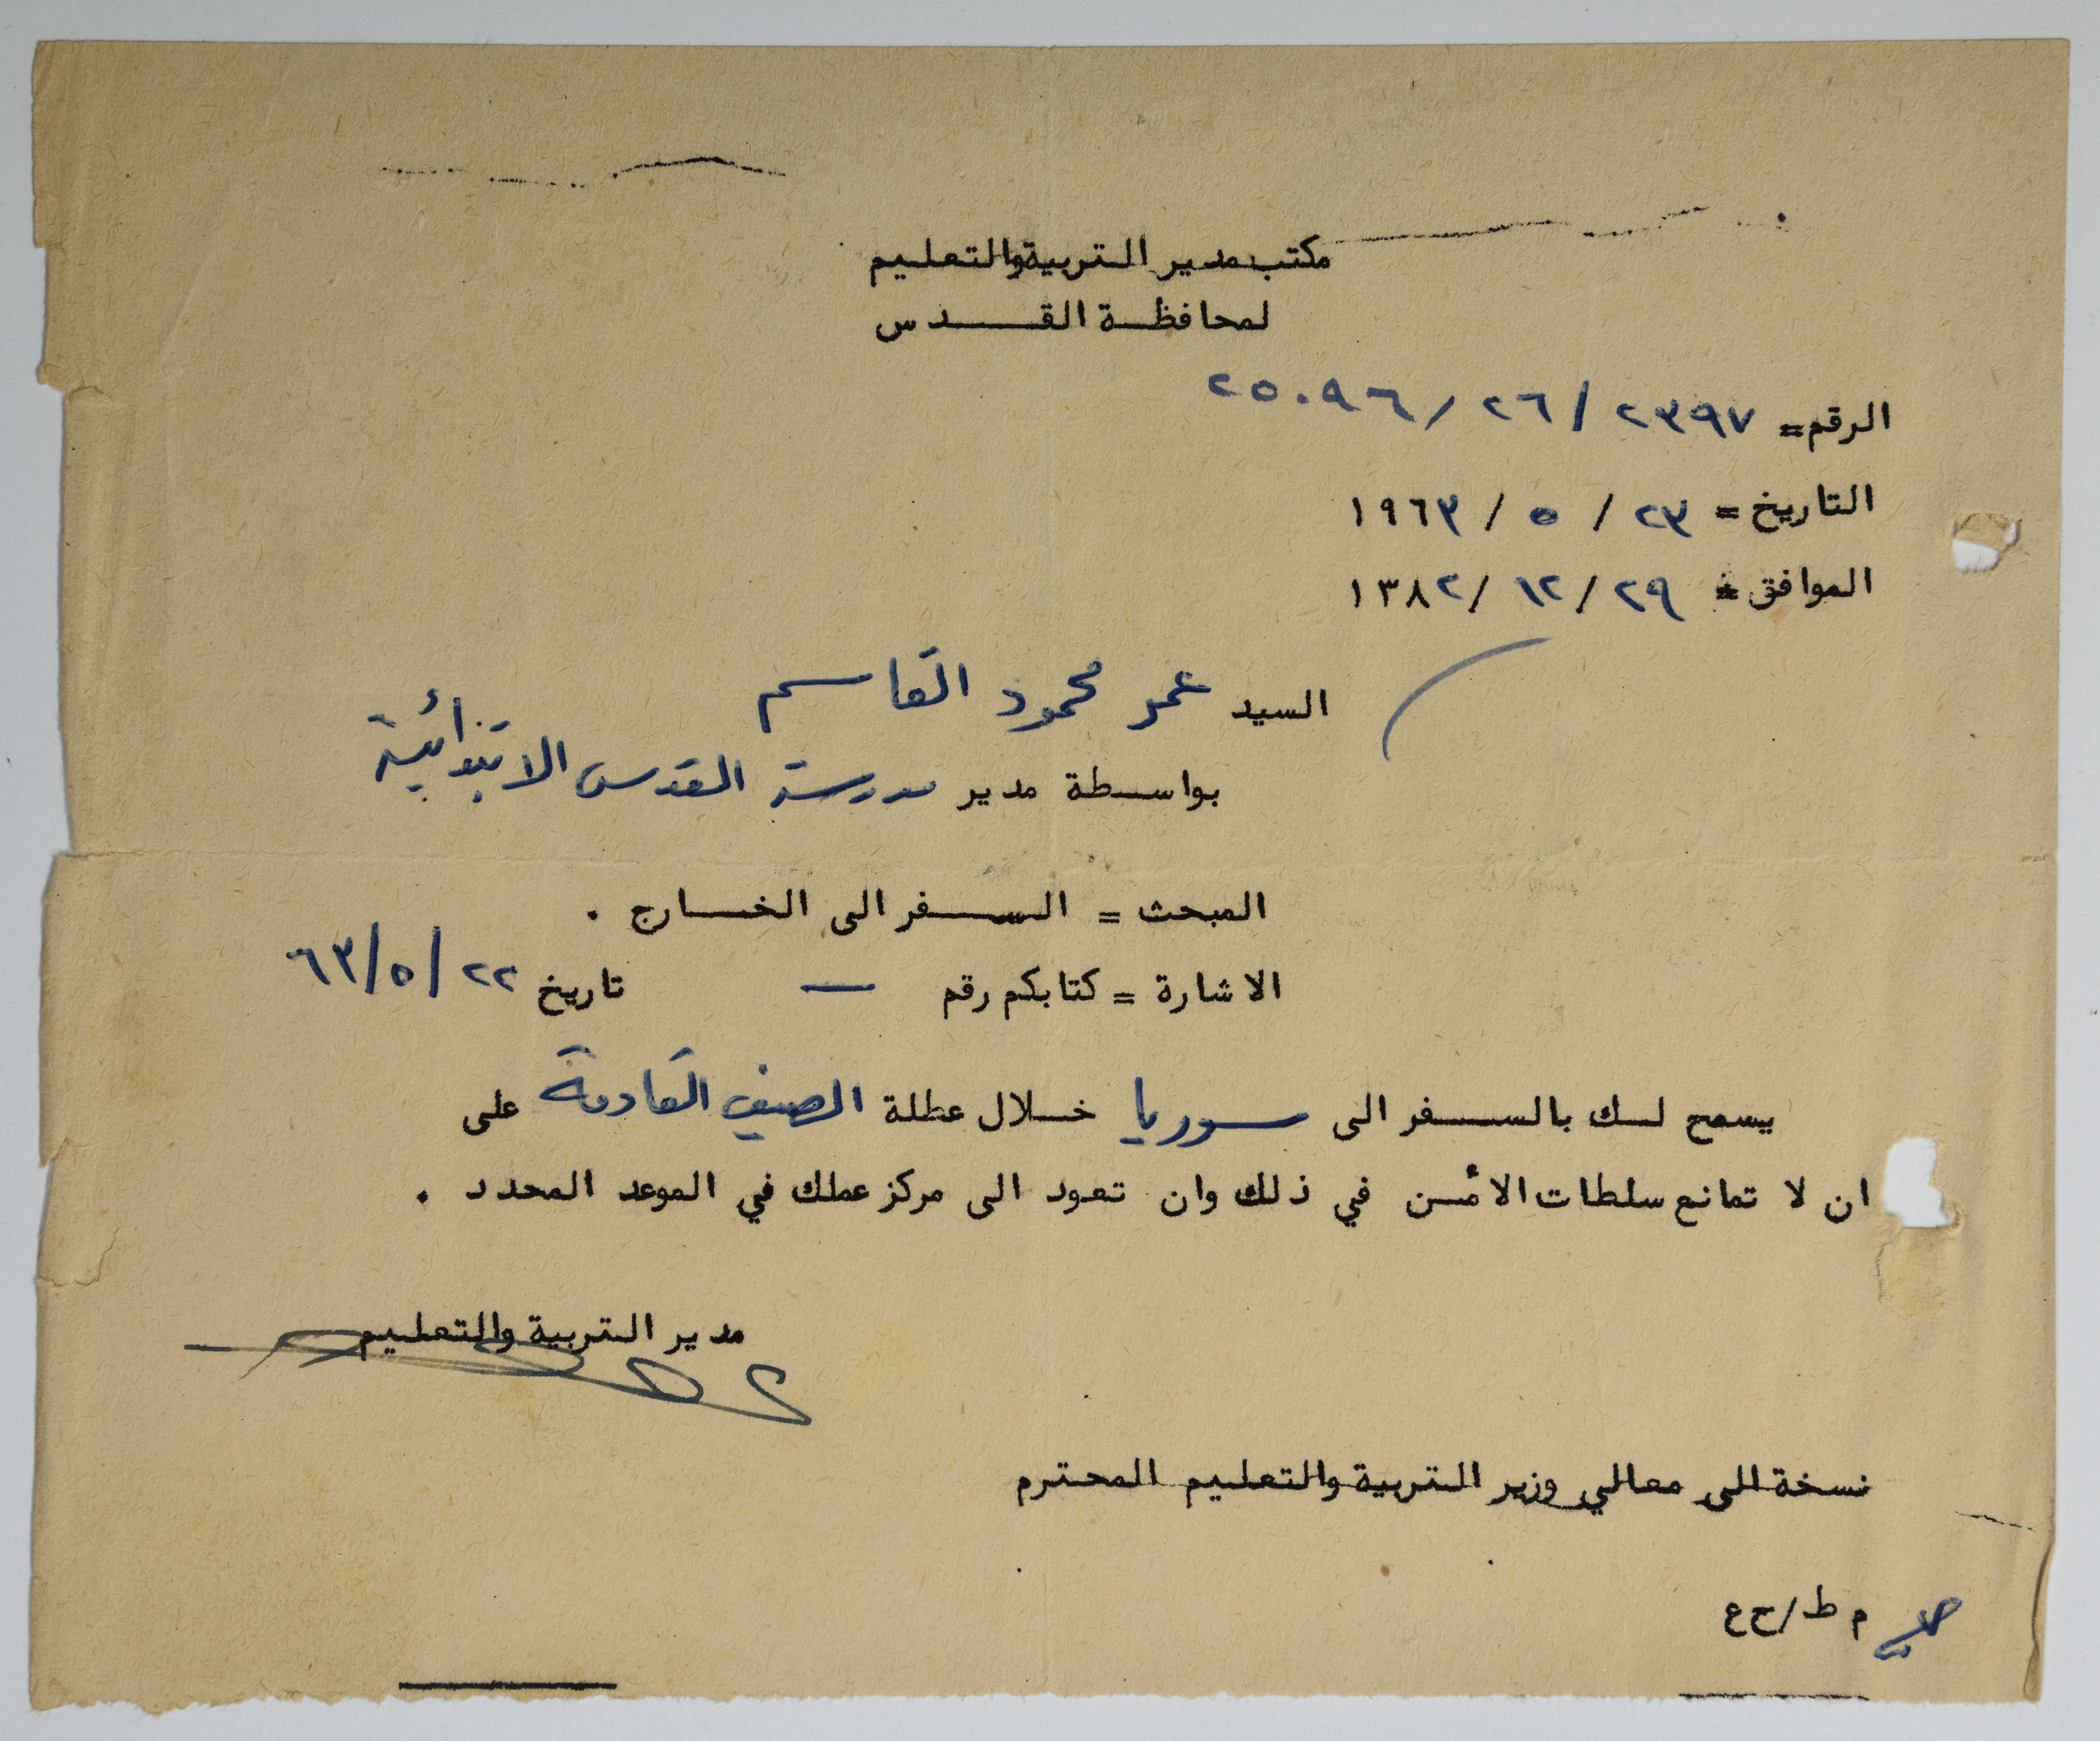 مكتب مدير التربية والتعليم
لمحافظة القدس
الرقم= ٢٣٩٧ / ٢٦ / ٢٥٠٩٦
التاريخ = ٢٣ / ٥ / ١٩٦٣
الموافق = ٢٩ / ١٢ / ١٣٨٢
السيد عمر محمود القاسم
بواسطة مدير مدرسة القدس الابتدائية
المبحث = السفر الى الخارج .
الاشارة = كتابكم رقم — تاريخ ٢٢ / ٥ / ٦٣
يسمح لك بالسفر الى سوريا خلال عطلة الصيف القادمة على
ان لا تمانع سلطات الأمن في ذلك وان تعود الى مركز عملك في الموعد المحدد .
مدير التربية والتعليم
نسخة الى معالي وزير التربية والتعليم المحترم
م ط / ح ع